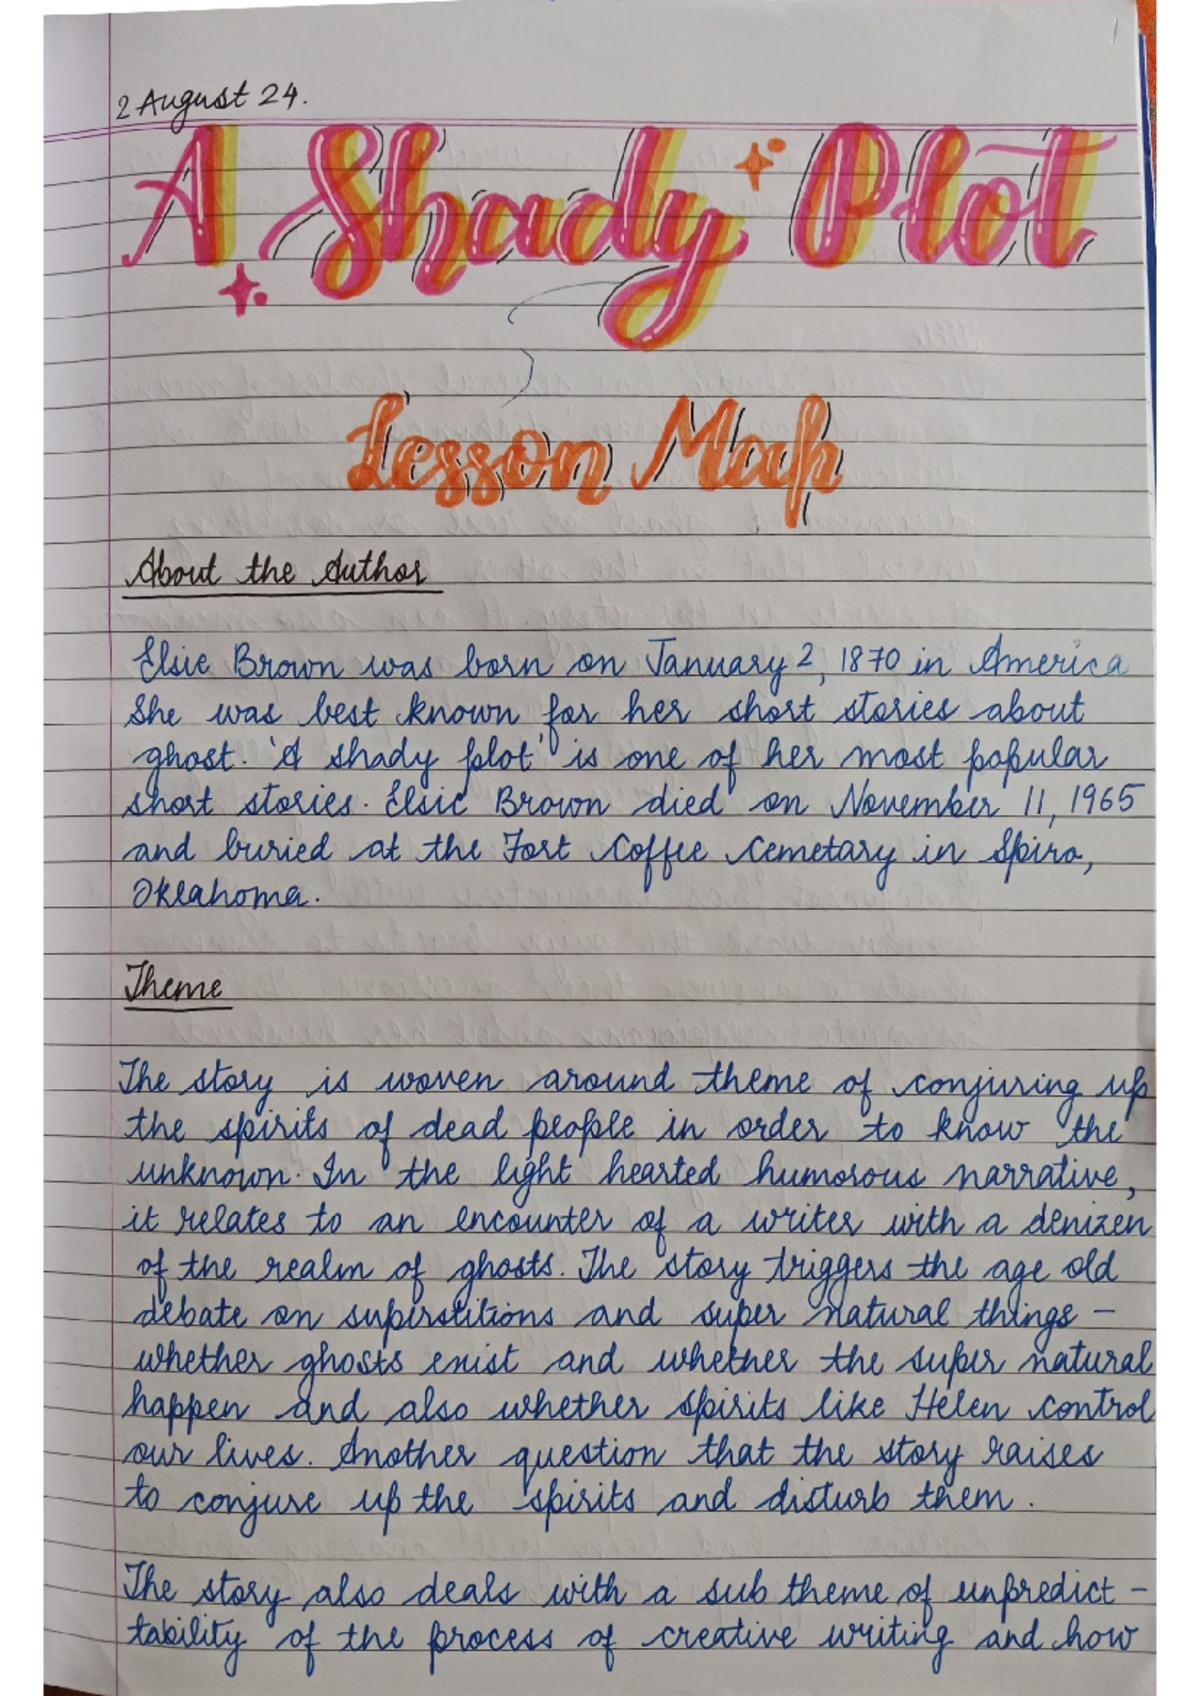 1
2 August 24.
A Shady Plot
Lesson Map
About the Author
Elsie Brown was born on January 2, 1870 in America
She was best known for her short stories about
ghost. 'A shady plot' is one of her most popular
short stories. Elsie Brown died on November 11, 1965
and buried at the Fort Coffee Cemetary in Spiro,
Oklahoma.
Theme
The story is woven around theme of conjuring up
the spirits of dead people in order to know the
unknown. In the light hearted humorous narrative,
it relates to an encounter of a writer with a denizen
of the realm of ghosts. The story triggers the age old
debate on superstitions and super natural things -
whether ghosts exist and whether the super natural
happen and also whether spirits like Helen control
our lives. Another question that the story raises
to conjure up the spirits and disturb them.
The story also deals with a sub theme of unpredict -
tability of the process of creative writing and how